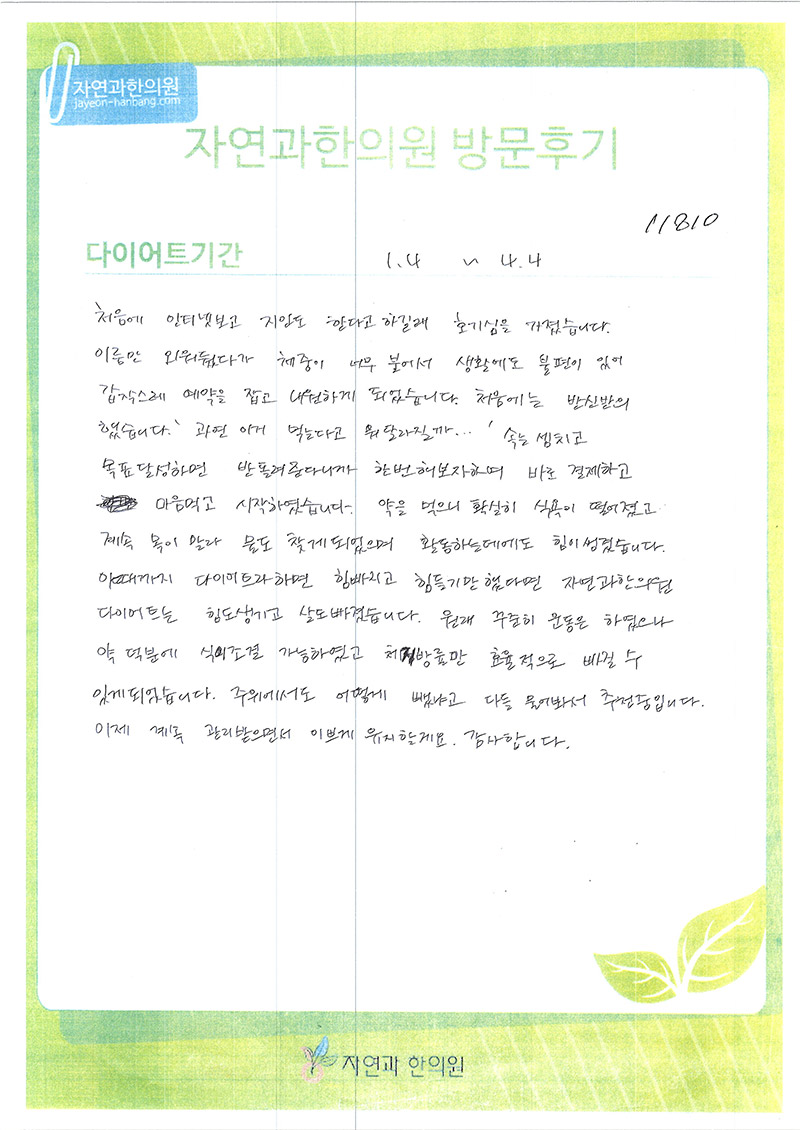 자연과한의원
jayeon-hanbang.com
자연과한의원 방문후기
11810
다이어트기간 1.4 ~ 4.4
처음에 인터넷보고 지인도 한다고 하길래 호기심을 가졌습니다.
이름만 외워뒀다가 체중이 너무 불어서 생활에도 불편이 있어
갑작스레 예약을 잡고 내원하게 되었습니다. 처음에는 반신반의
했습니다. '과연 이거 먹는다고 뭐 달라질까...' 속는 셈치고
목표달성하면 반돌려준다니까 한번 해보자하며 바로 결제하고
마음먹고 시작하였습니다. 약을 먹으니 확실히 식욕이 떨어졌고
계속 목이 말라 물도 찾게되었으며 활동하는데에도 힘이 생겼습니다.
이때까지 다이어트라하면 힘빠지고 힘들기만 했다면 자연과한의원
다이어트는 힘도생기고 살도빠졌습니다. 원래 꾸준히 운동은 하였으나
약 덕분에 식이조절 가능하였고 체지방률만 효율적으로 빠질 수
있게되었습니다. 주위에서도 어떻게 뺐냐고 다들 물어봐서 추천중입니다.
이제 계속 관리받으면서 이쁘게 유지할게요. 감사합니다.
자연과 한의원